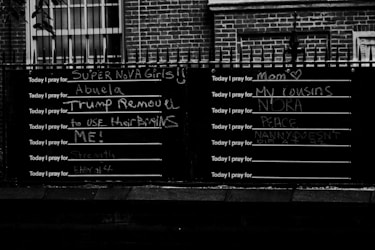 Today I pray for SUPER NOVA Girls!!
Today I pray for Abuela
Today I pray for Trump Removel
Today I pray for to USE their BRAINS
Today I pray for ME!
Today I pray for Strength
Today I pray for
Today I pray for Mom
Today I pray for My cousins
Today I pray for NORA
Today I pray for PEACE
Today I pray for NANNY DOESN'T
Today I pray for
Today I pray for